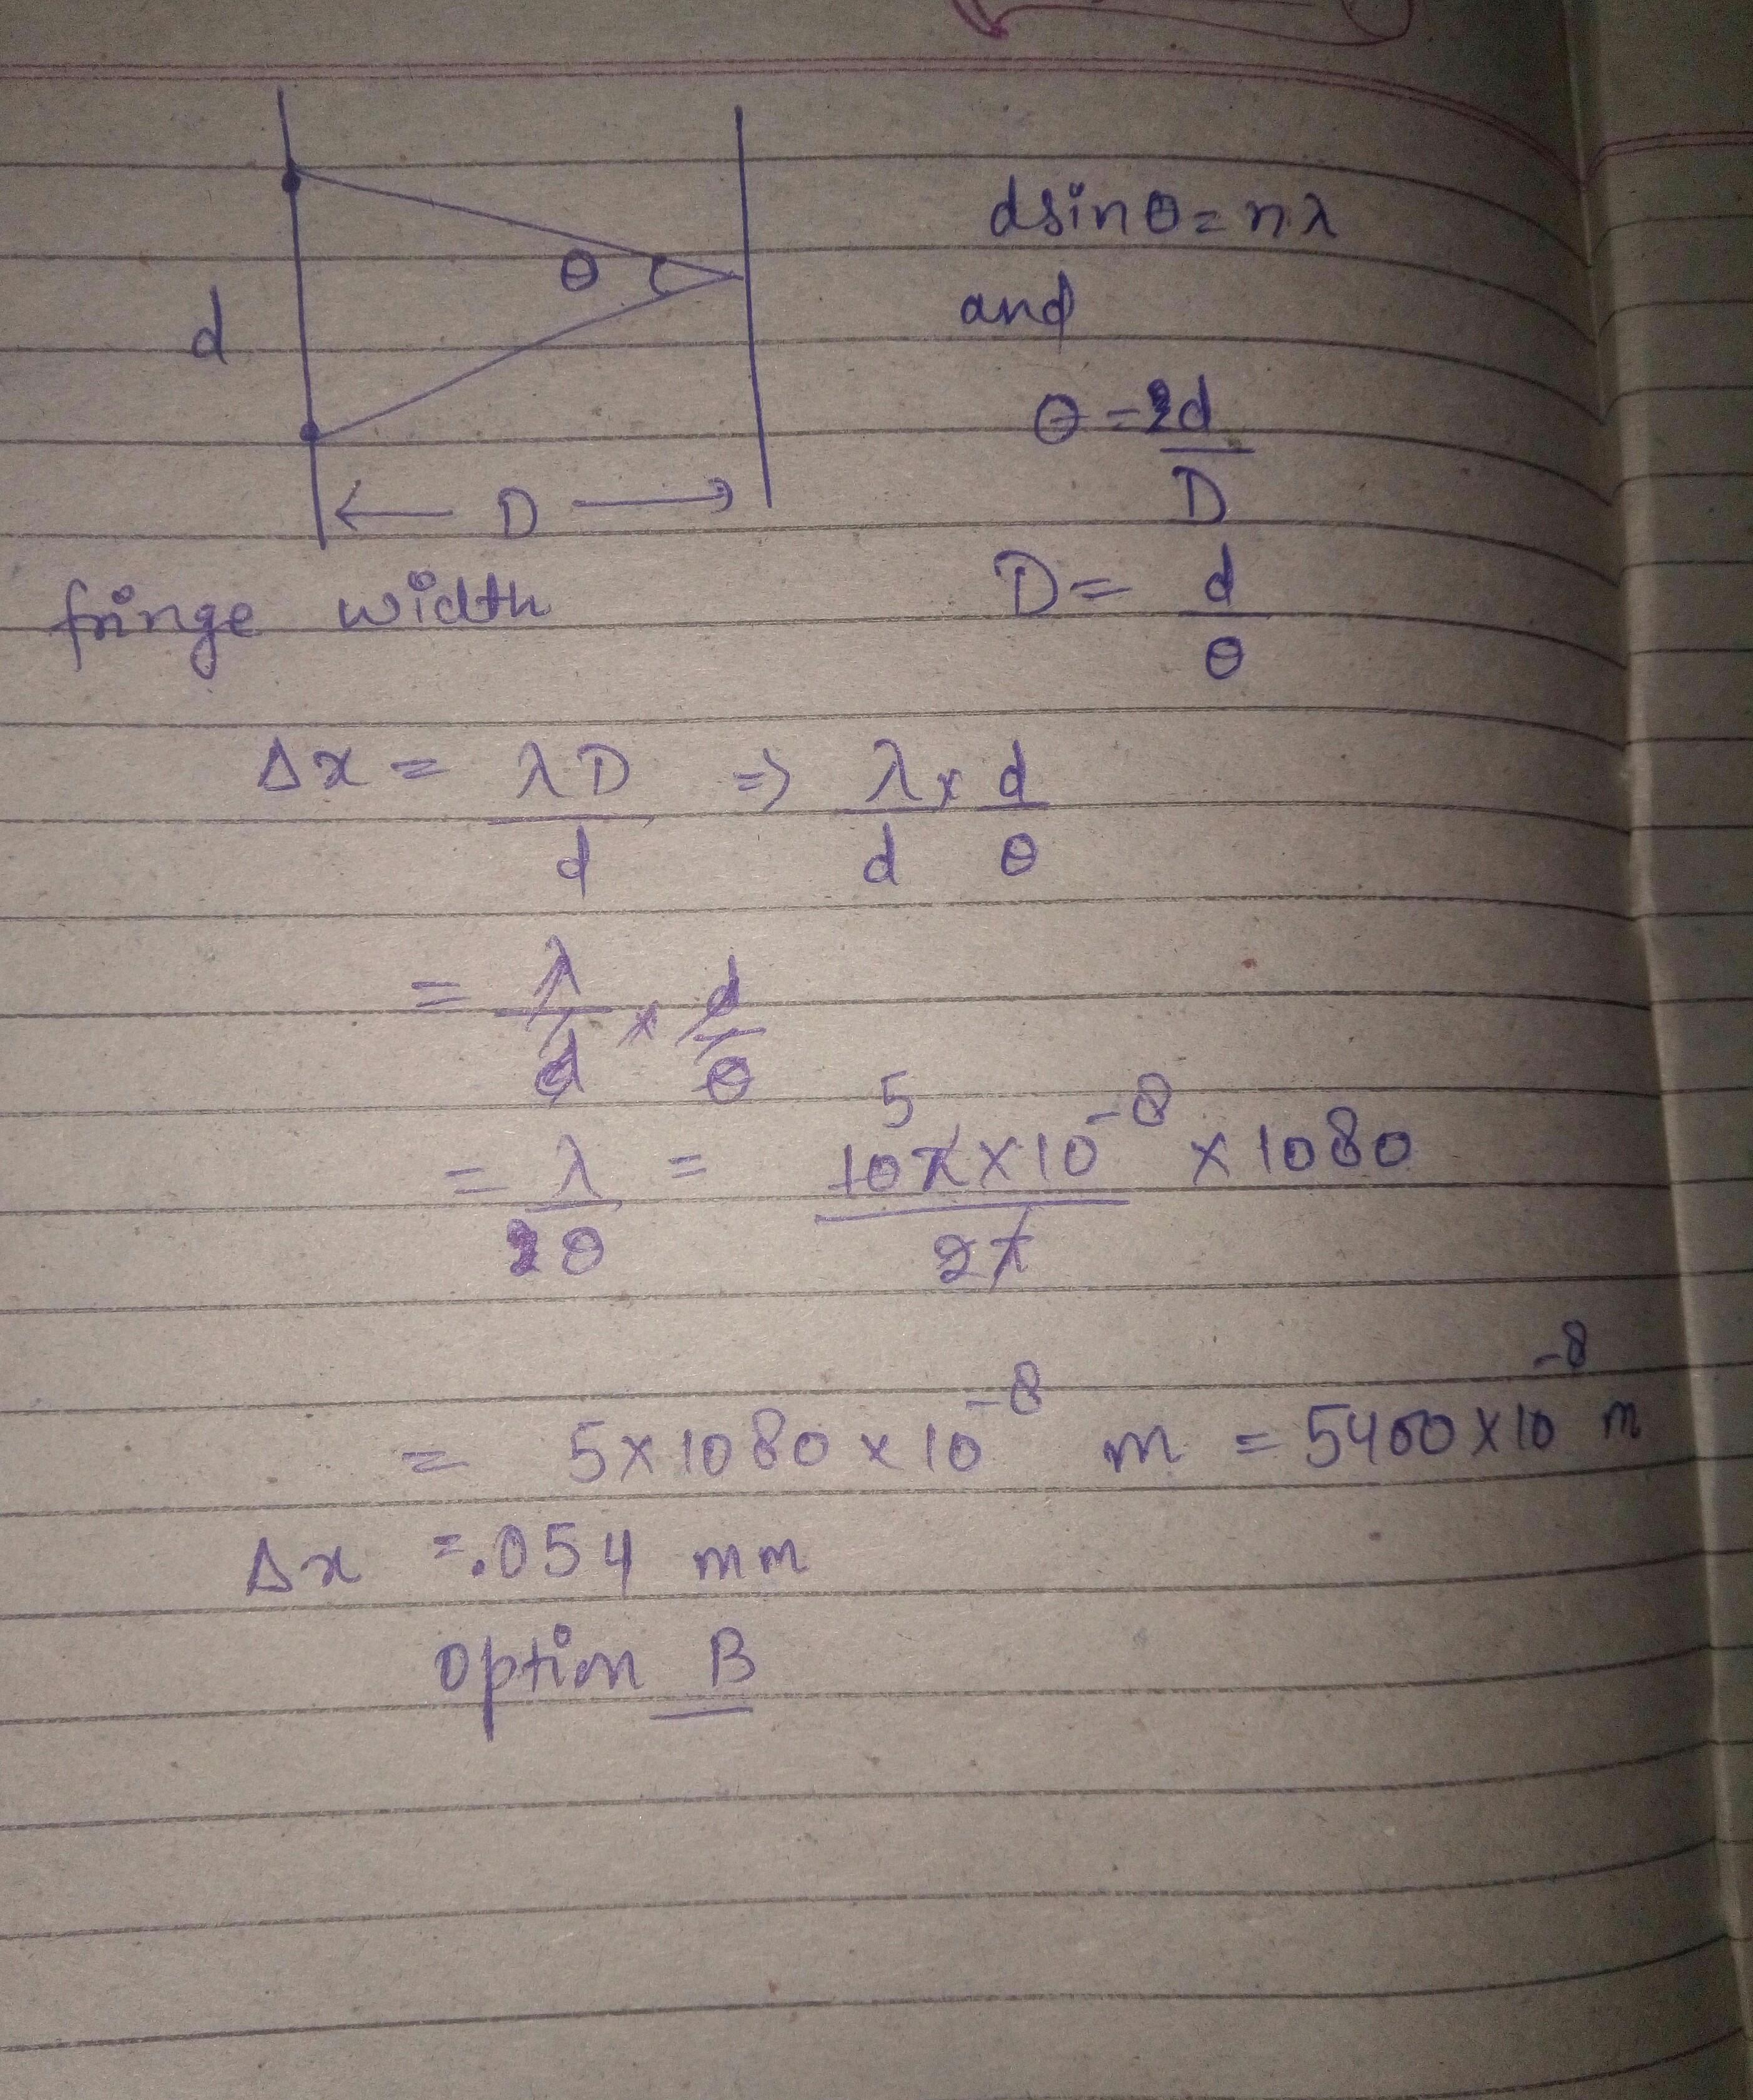 dsinθ = nλ
d
θ
and
θ = d
D
D
D = d
θ
fringe width
Δx = λD ⇒ λ × d
d d θ
= λ × d
d θ
5
= λ = 10π×10⁻⁸ × 1080
θ 2π
= 5×1080×10⁻⁸ m = 5400×10⁻⁸ m
Δx = .054 mm
option B